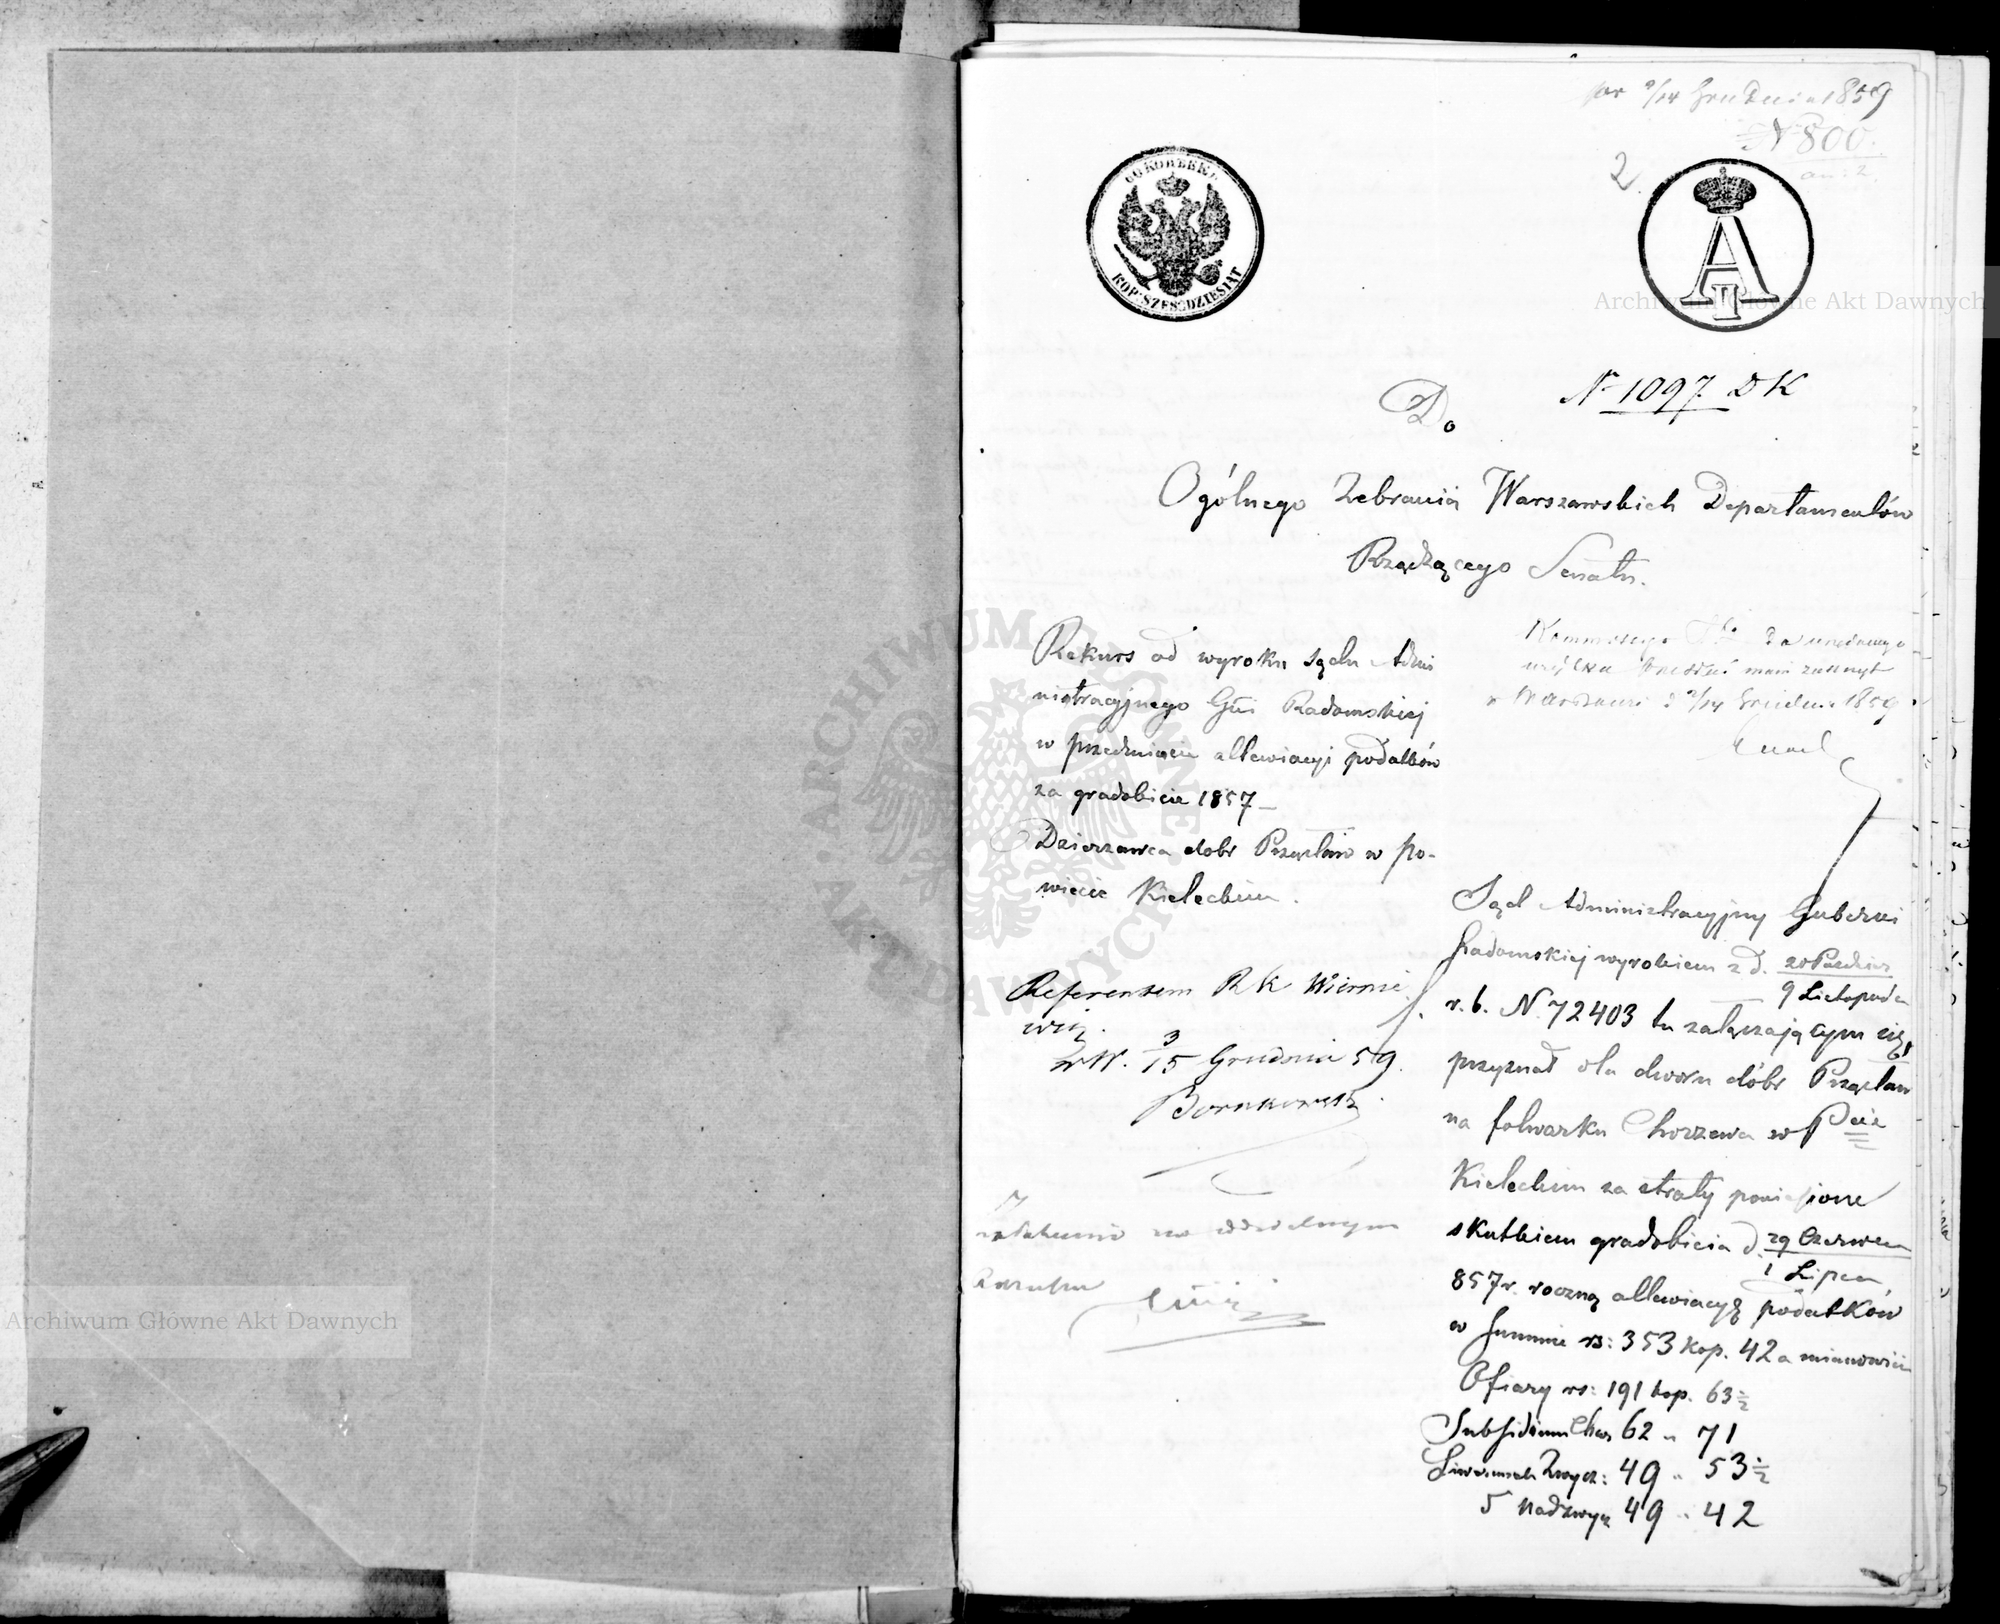 2/14 Grudnia 1859
N 800.
an: 2.
2.
KOP: SZEŚĆDZIESIĄT
A II
Archiwum Główne Akt Dawnych
Nr 1097 DK
Do
Ogólnego Zebrania Warszawskich Departamentów
Rządzącego Senatu.
Rekurs od wyroku Sądu Admi
nistracyjnego Gńi Radomskiej
w przedmiocie allewiacyi podatków
za gradobicie 1857 –
Dzierżawca dobr Przęsław w po-
wiecie Kieleckim.
w Warszawie d 2/14 Grudnia 1859
Referentem RK
w W. 3/15 Grudnia 59.
ARCHIWUM GŁÓWNE AKT DAWNYCH
Sąd Administracyjny Gubernii
Radomskiej wyrokiem z d. 
9 Listopada
r. b. N. 72403 tu załączającym się,
przyznał dla dworu dóbr Przęsław
na folwarku Chorzewa w Pcie
Kieleckim za straty poniesione
skutkiem gradobicia d. 29 Czerwca
1 Lipca
857 r. roczną allewiacyę podatków
w summie rs: 353 kop. 42 a mianowicie
Ofiary rs: 191 kop. 63 ½
Subsidium Char 62 " 71
Liwerunek Zwycz: 49 " 53 ½
5 Nadzwycz 49 " 42
Archiwum Główne Akt Dawnych